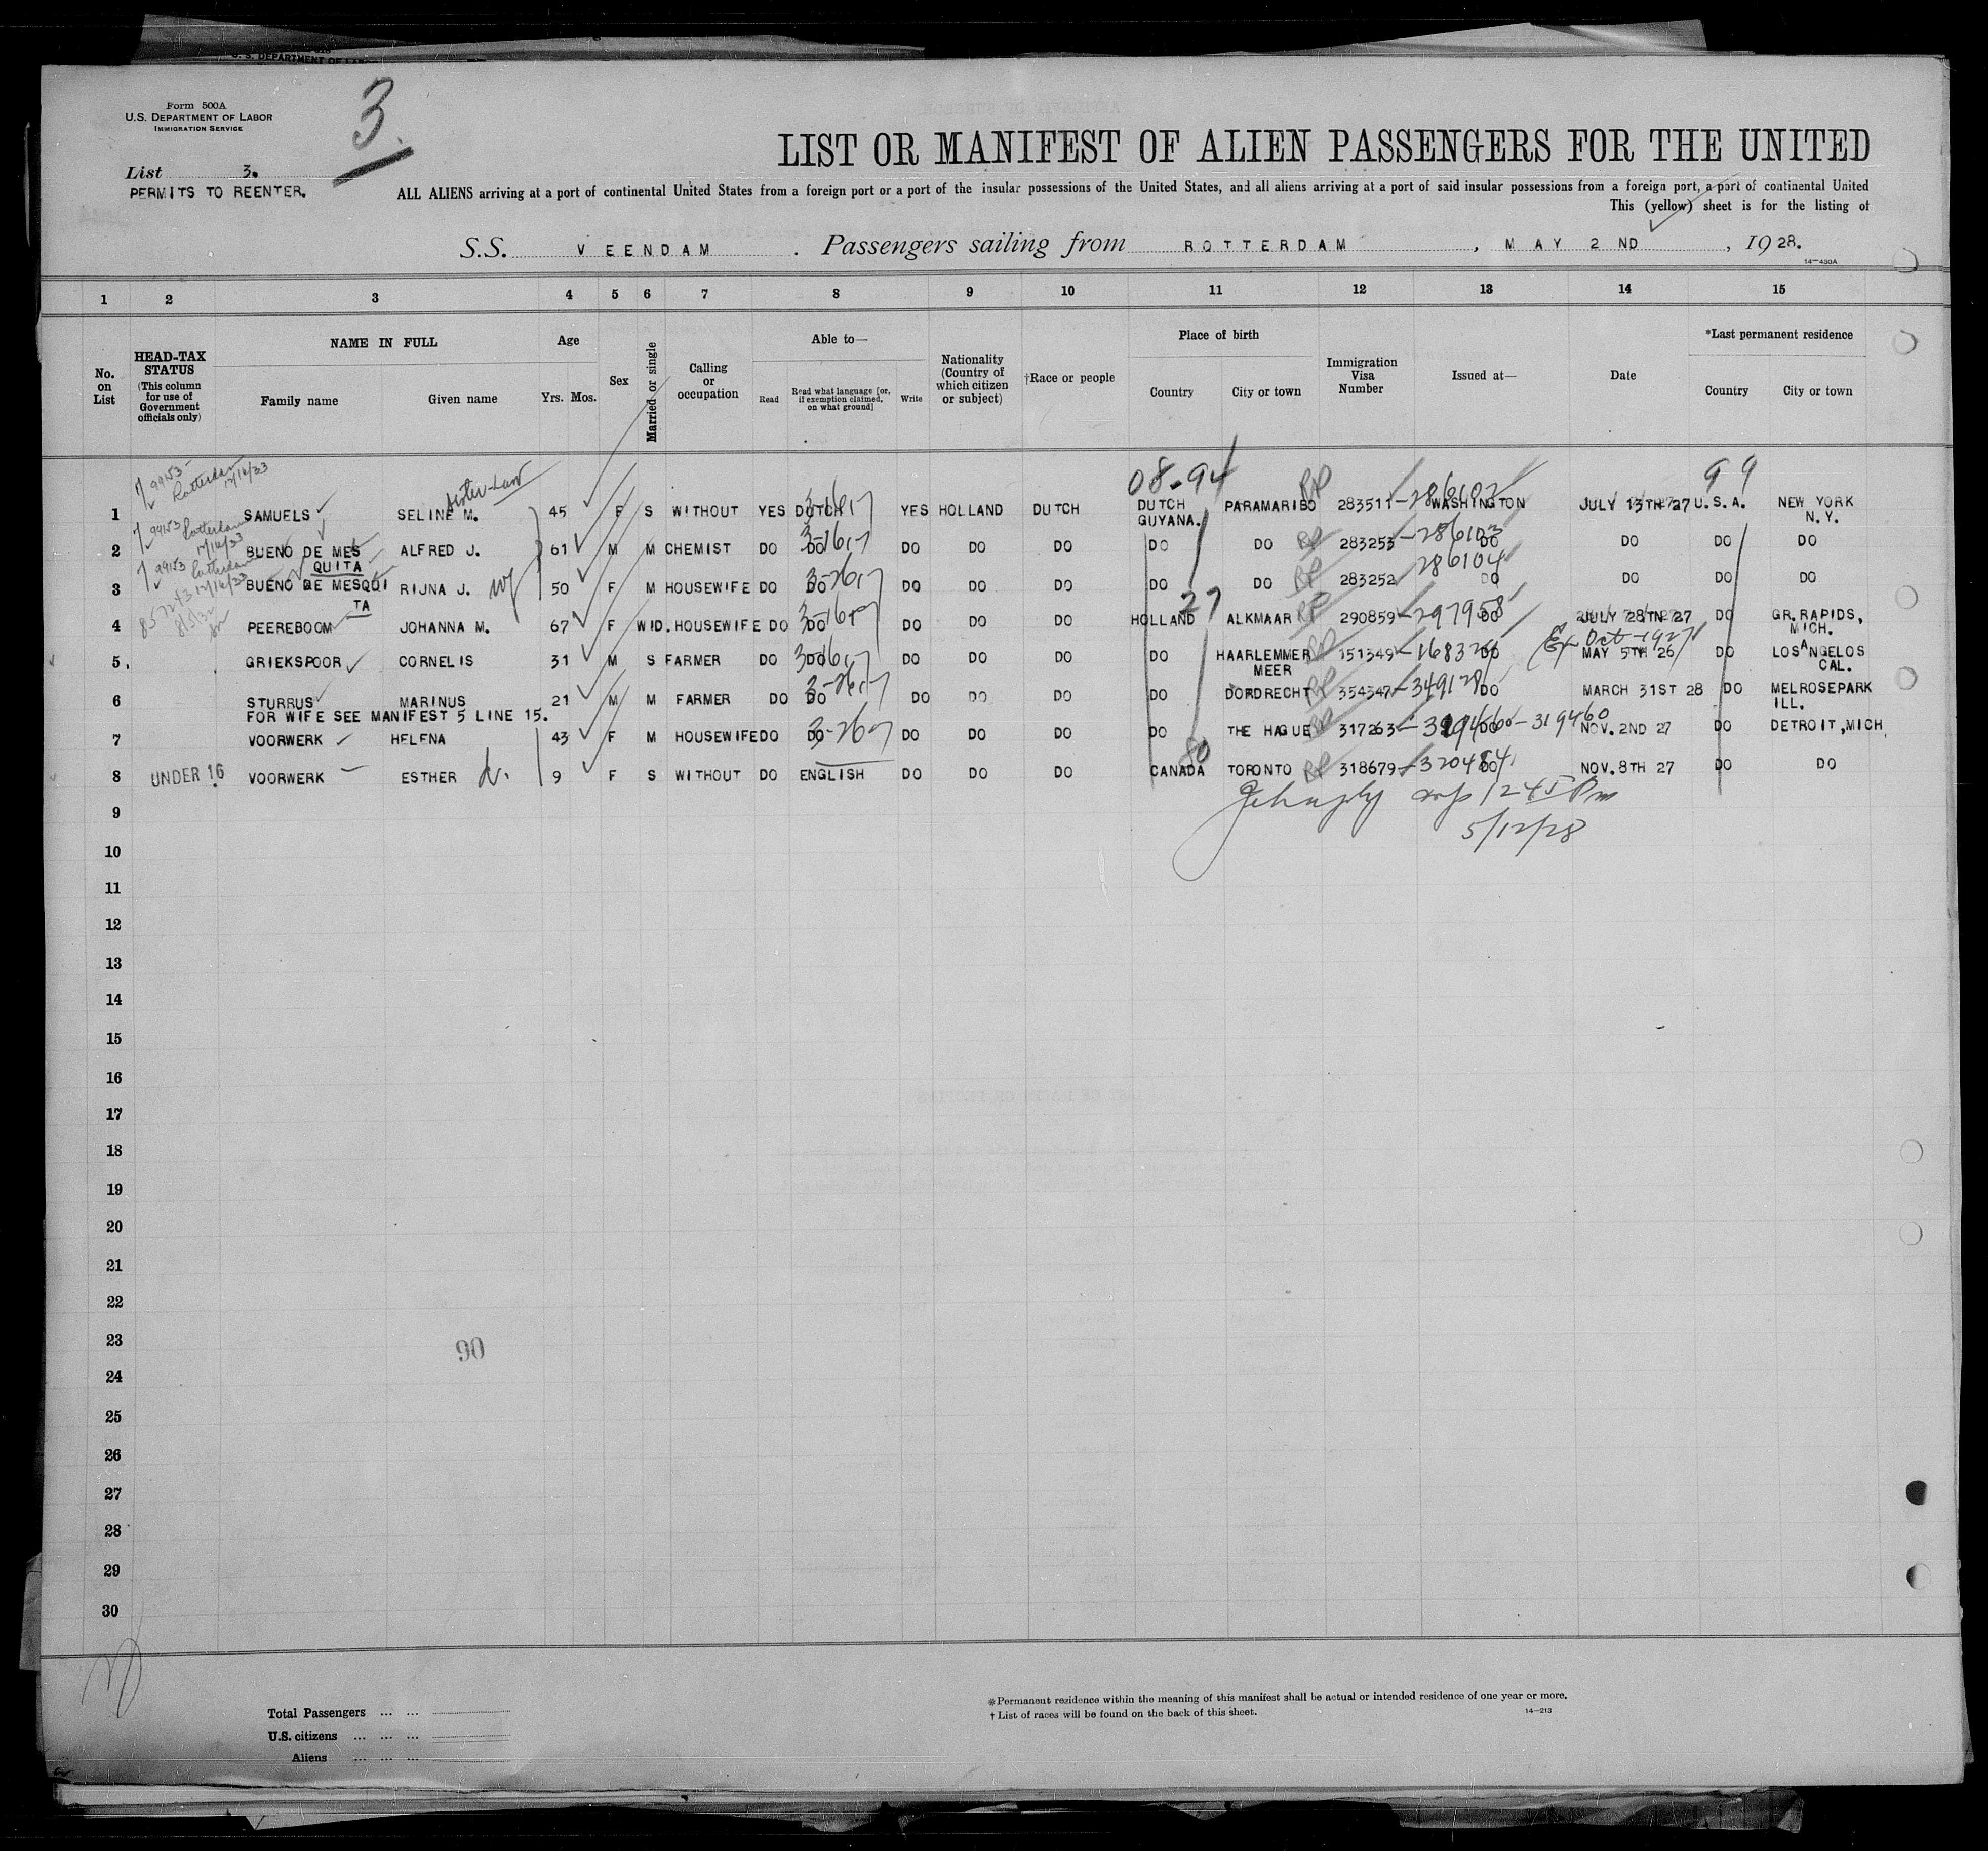 U. S. DEPARTMENT OF LABOR
Form 500A
U.S. DEPARTMENT OF LABOR
IMMIGRATION SERVICE
3.
List 3.
PERMITS TO REENTER.
LIST OR MANIFEST OF ALIEN PASSENGERS FOR THE UNITED
ALL ALIENS arriving at a port of continental United States from a foreign port or a port of the insular possessions of the United States, and all aliens arriving at a port of said insular possessions from a foreign port, a port of continental United
This (yellow) sheet is for the listing of
S.S. VEENDAM. Passengers sailing from ROTTERDAM, MAY 2ND, 1928.
14-430A
1 2 3 4 5 6 7 8 9 10 11 12 13 14 15
No. on List
HEAD-TAX STATUS (This column for use of Government officials only)
NAME IN FULL
Family name Given name
Age
Yrs. Mos.
Sex
Married or single
Calling or occupation
Able to—
Read Read what language [or, if exemption claimed, on what ground] Write
Nationality (Country of which citizen or subject)
†Race or people
Place of birth
Country City or town
Immigration Visa Number
Issued at—
Date
*Last permanent residence
Country City or town
99153- Rotterdam 12/16/33
sister-Law
08-94 99
1 SAMUELS SELINE M. 45 F S WITHOUT YES DUTCH YES HOLLAND DUTCH DUTCH GUYANA. PARAMARIBO RP 283511-286102 WASHINGTON JULY 13TH 27 U.S.A. NEW YORK N.Y.
99153 Rotterdam 12/16/33
2 BUENO DE MESQUITA ALFRED J. 61 M M CHEMIST DO DO DO DO DO DO DO RP 283253-286103 DO DO DO DO
99153 Rotterdam 12/16/33
3 BUENO DE MESQUITA RIJNA J. wf 50 F M HOUSEWIFE DO DO DO DO DO DO DO RP 283252 286104 DO DO DO DO
27
4 PEEREBOOM JOHANNA M. 67 F WID. HOUSEWIFE DO DO DO DO DO HOLLAND ALKMAAR RP 290859-297958 DO JULY 28TH 27 DO GR.RAPIDS, MICH.
Ex Oct-1927
5. GRIEKSPOOR CORNELIS 31 M S FARMER DO DO DO DO DO DO HAARLEMMER MEER RP 151349 DO MAY 5TH 26 DO LOSANGELOS CAL.
6 STURRUS MARINUS 21 M M FARMER DO DO DO DO DO DO DORDRECHT RP 354347-349128 DO MARCH 31ST 28 DO MELROSEPARK ILL.
FOR WIFE SEE MANIFEST 5 LINE 15.
7 VOORWERK HELENA 43 F M HOUSEWIFE DO DO DO DO DO DO THE HAGUE RP 317263 DO -319460 NOV. 2ND 27 DO DETROIT,MICH
80
8 UNDER 16 VOORWERK ESTHER d. 9 F S WITHOUT DO ENGLISH DO DO DO CANADA TORONTO RP 318679-320484 DO NOV. 8TH 27 DO DO
9
1245 Pm
5/12/28
10
11
12
13
14
15
16
17
18
19
20
21
22
23
90
24
25
26
27
28
29
30
Total Passengers
U.S. citizens
Aliens
*Permanent residence within the meaning of this manifest shall be actual or intended residence of one year or more.
† List of races will be found on the back of this sheet.
14-213